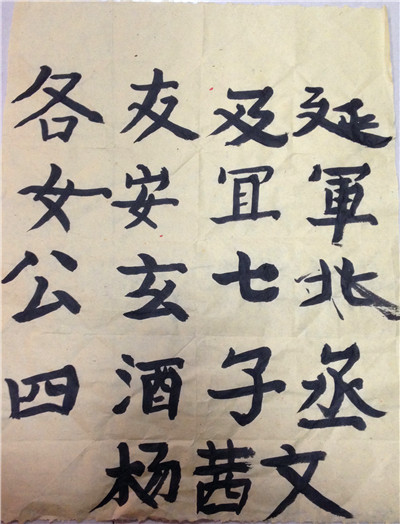 各友及延
女安冝軍
公玄七北
四酒子丞
杨茜文